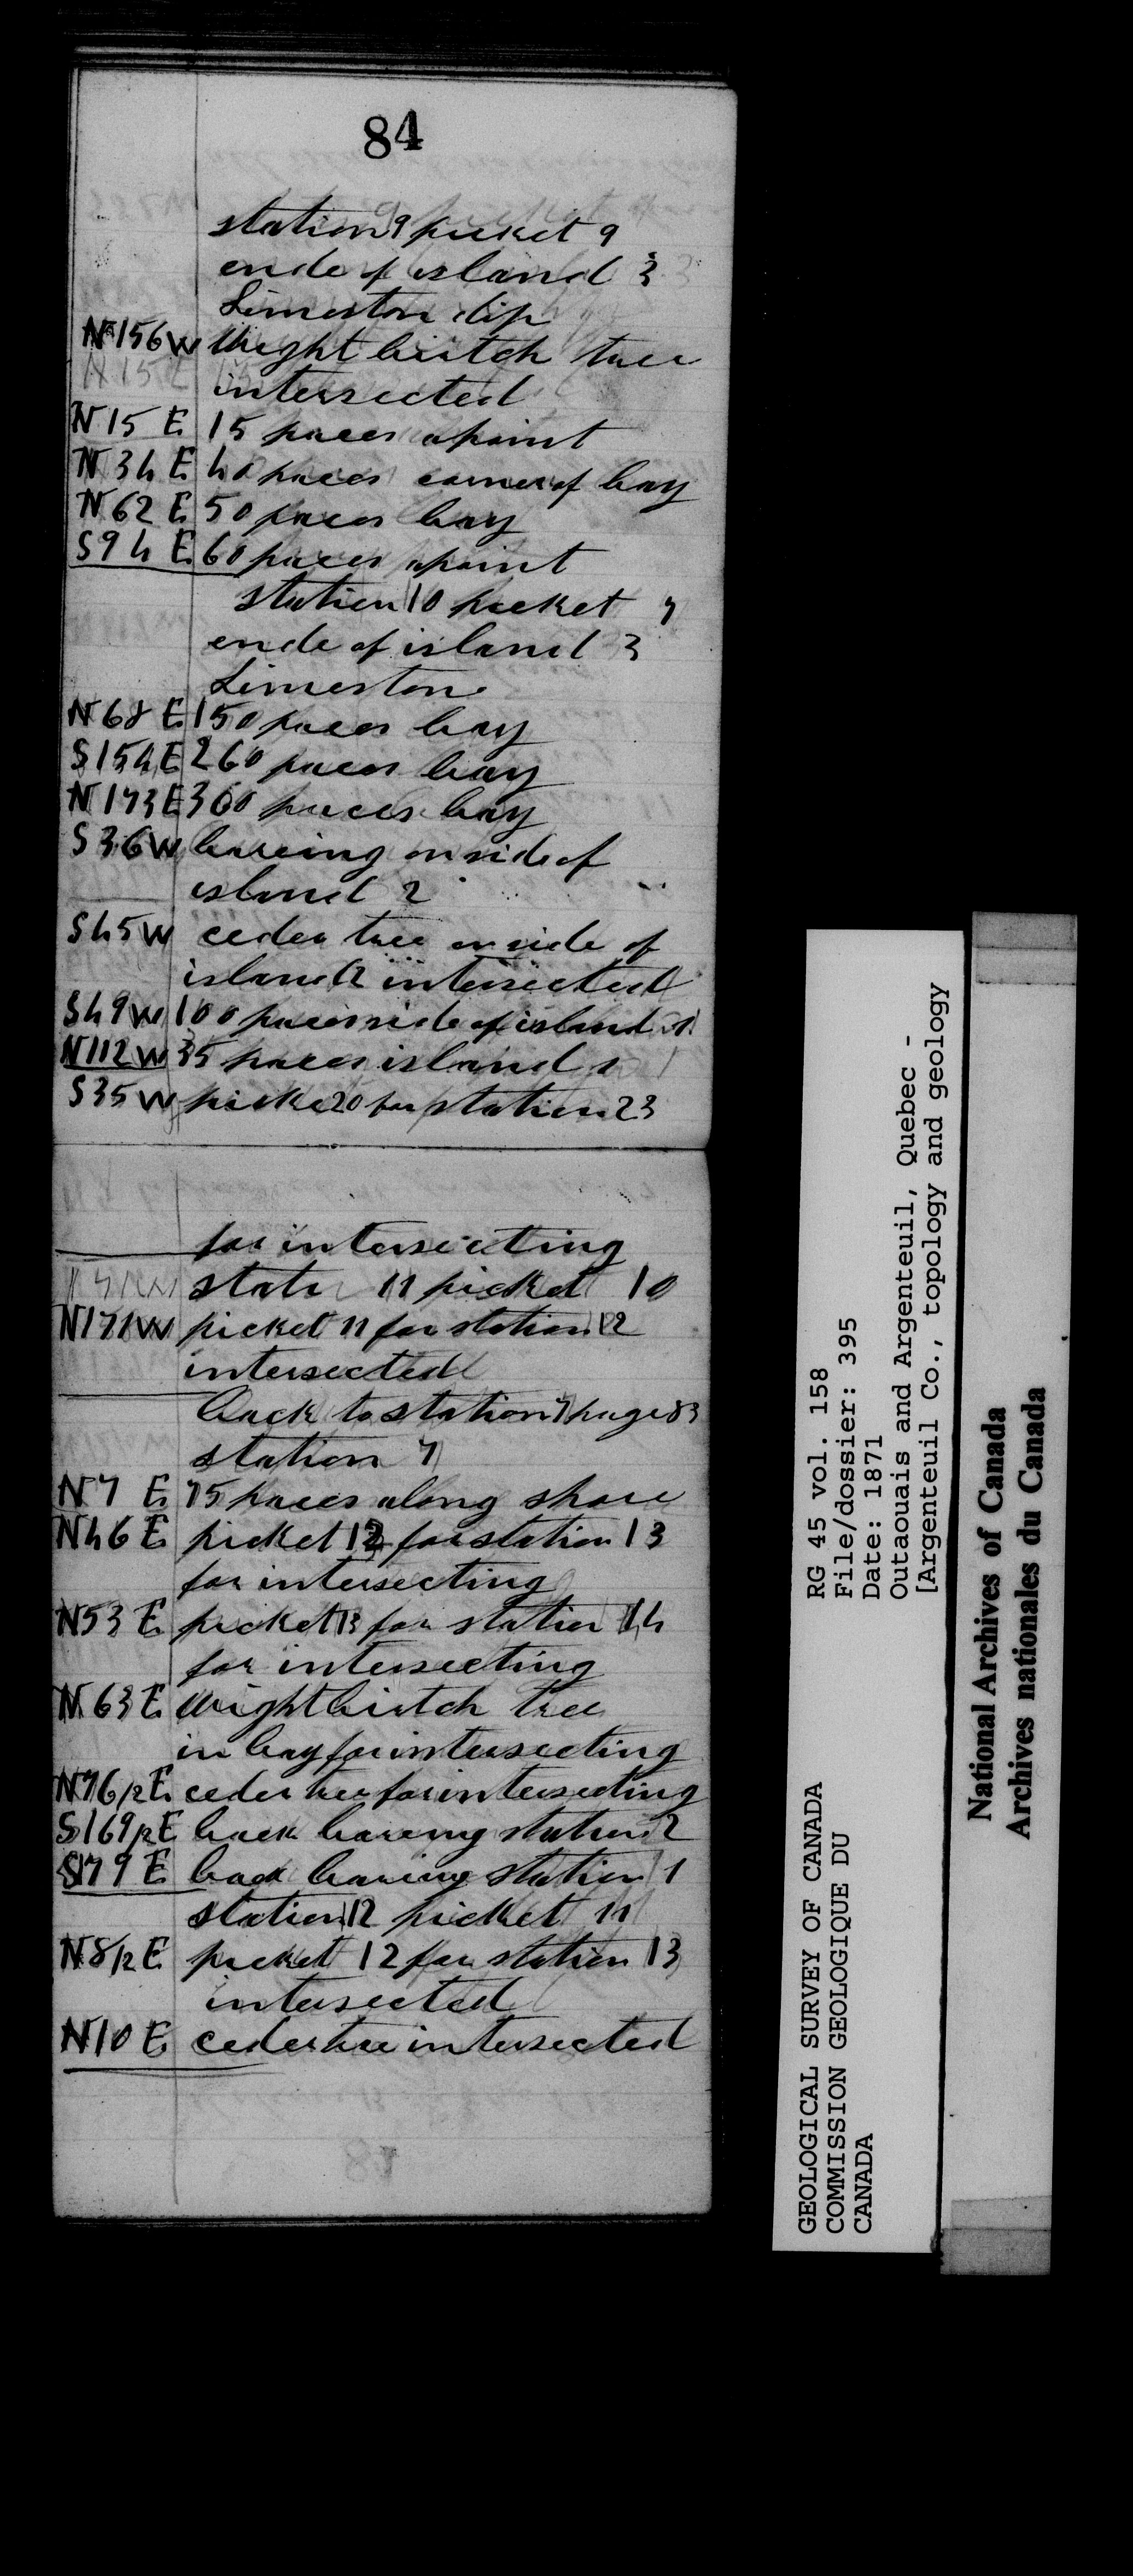 84
station 9 picket 9
ende of island 3
Limeston dip
N 156 W Wight birtch tree
intersected
N 15 E 15 paces a point
N 34 E 40 paces corner of bay
N 62 E 50 paces bay
S 94 E 60 paces a point
station 10 picket 7
ende of island 3
Limeston
N 68 E 150 paces bay
S 154 E 260 paces bay
N 173 E 300 paces bay
S 36 W bareing on side of
island 2
S 45 W ceder tree on side of
island 2 intersected
S 49 W 100 paces side of island 1
N 112 W 35 paces island 1
S 35 W picke 20 for station 23
for intersecting
statn 11 picket 10
N 171 W picket 11 for station 12
intersected
back to station 7 page 83
station 7
N 7 E 75 paces along shore
N 46 E picket 12 for station 13
for intersecting
N 53 E picket 13 for station 14
for intersecting
N 63 E Wight birtch tree
in bay for intersecting
N 76/2 E ceder tree for intersecting
S 169/2 E back bareing station 2
S 179 E back bareing station 1
station 12 picket 11
N 8/2 E picket 12 for station 13
intersected
N 10 E ceder tree intersected
GEOLOGICAL SURVEY OF CANADA
COMMISSION GEOLOGIQUE DU
CANADA
RG 45 vol. 158
File/dossier: 395
Date: 1871
Outaouais and Argenteuil, Quebec -
[Argenteuil Co., topology and geology
National Archives of Canada
Archives nationales du Canada